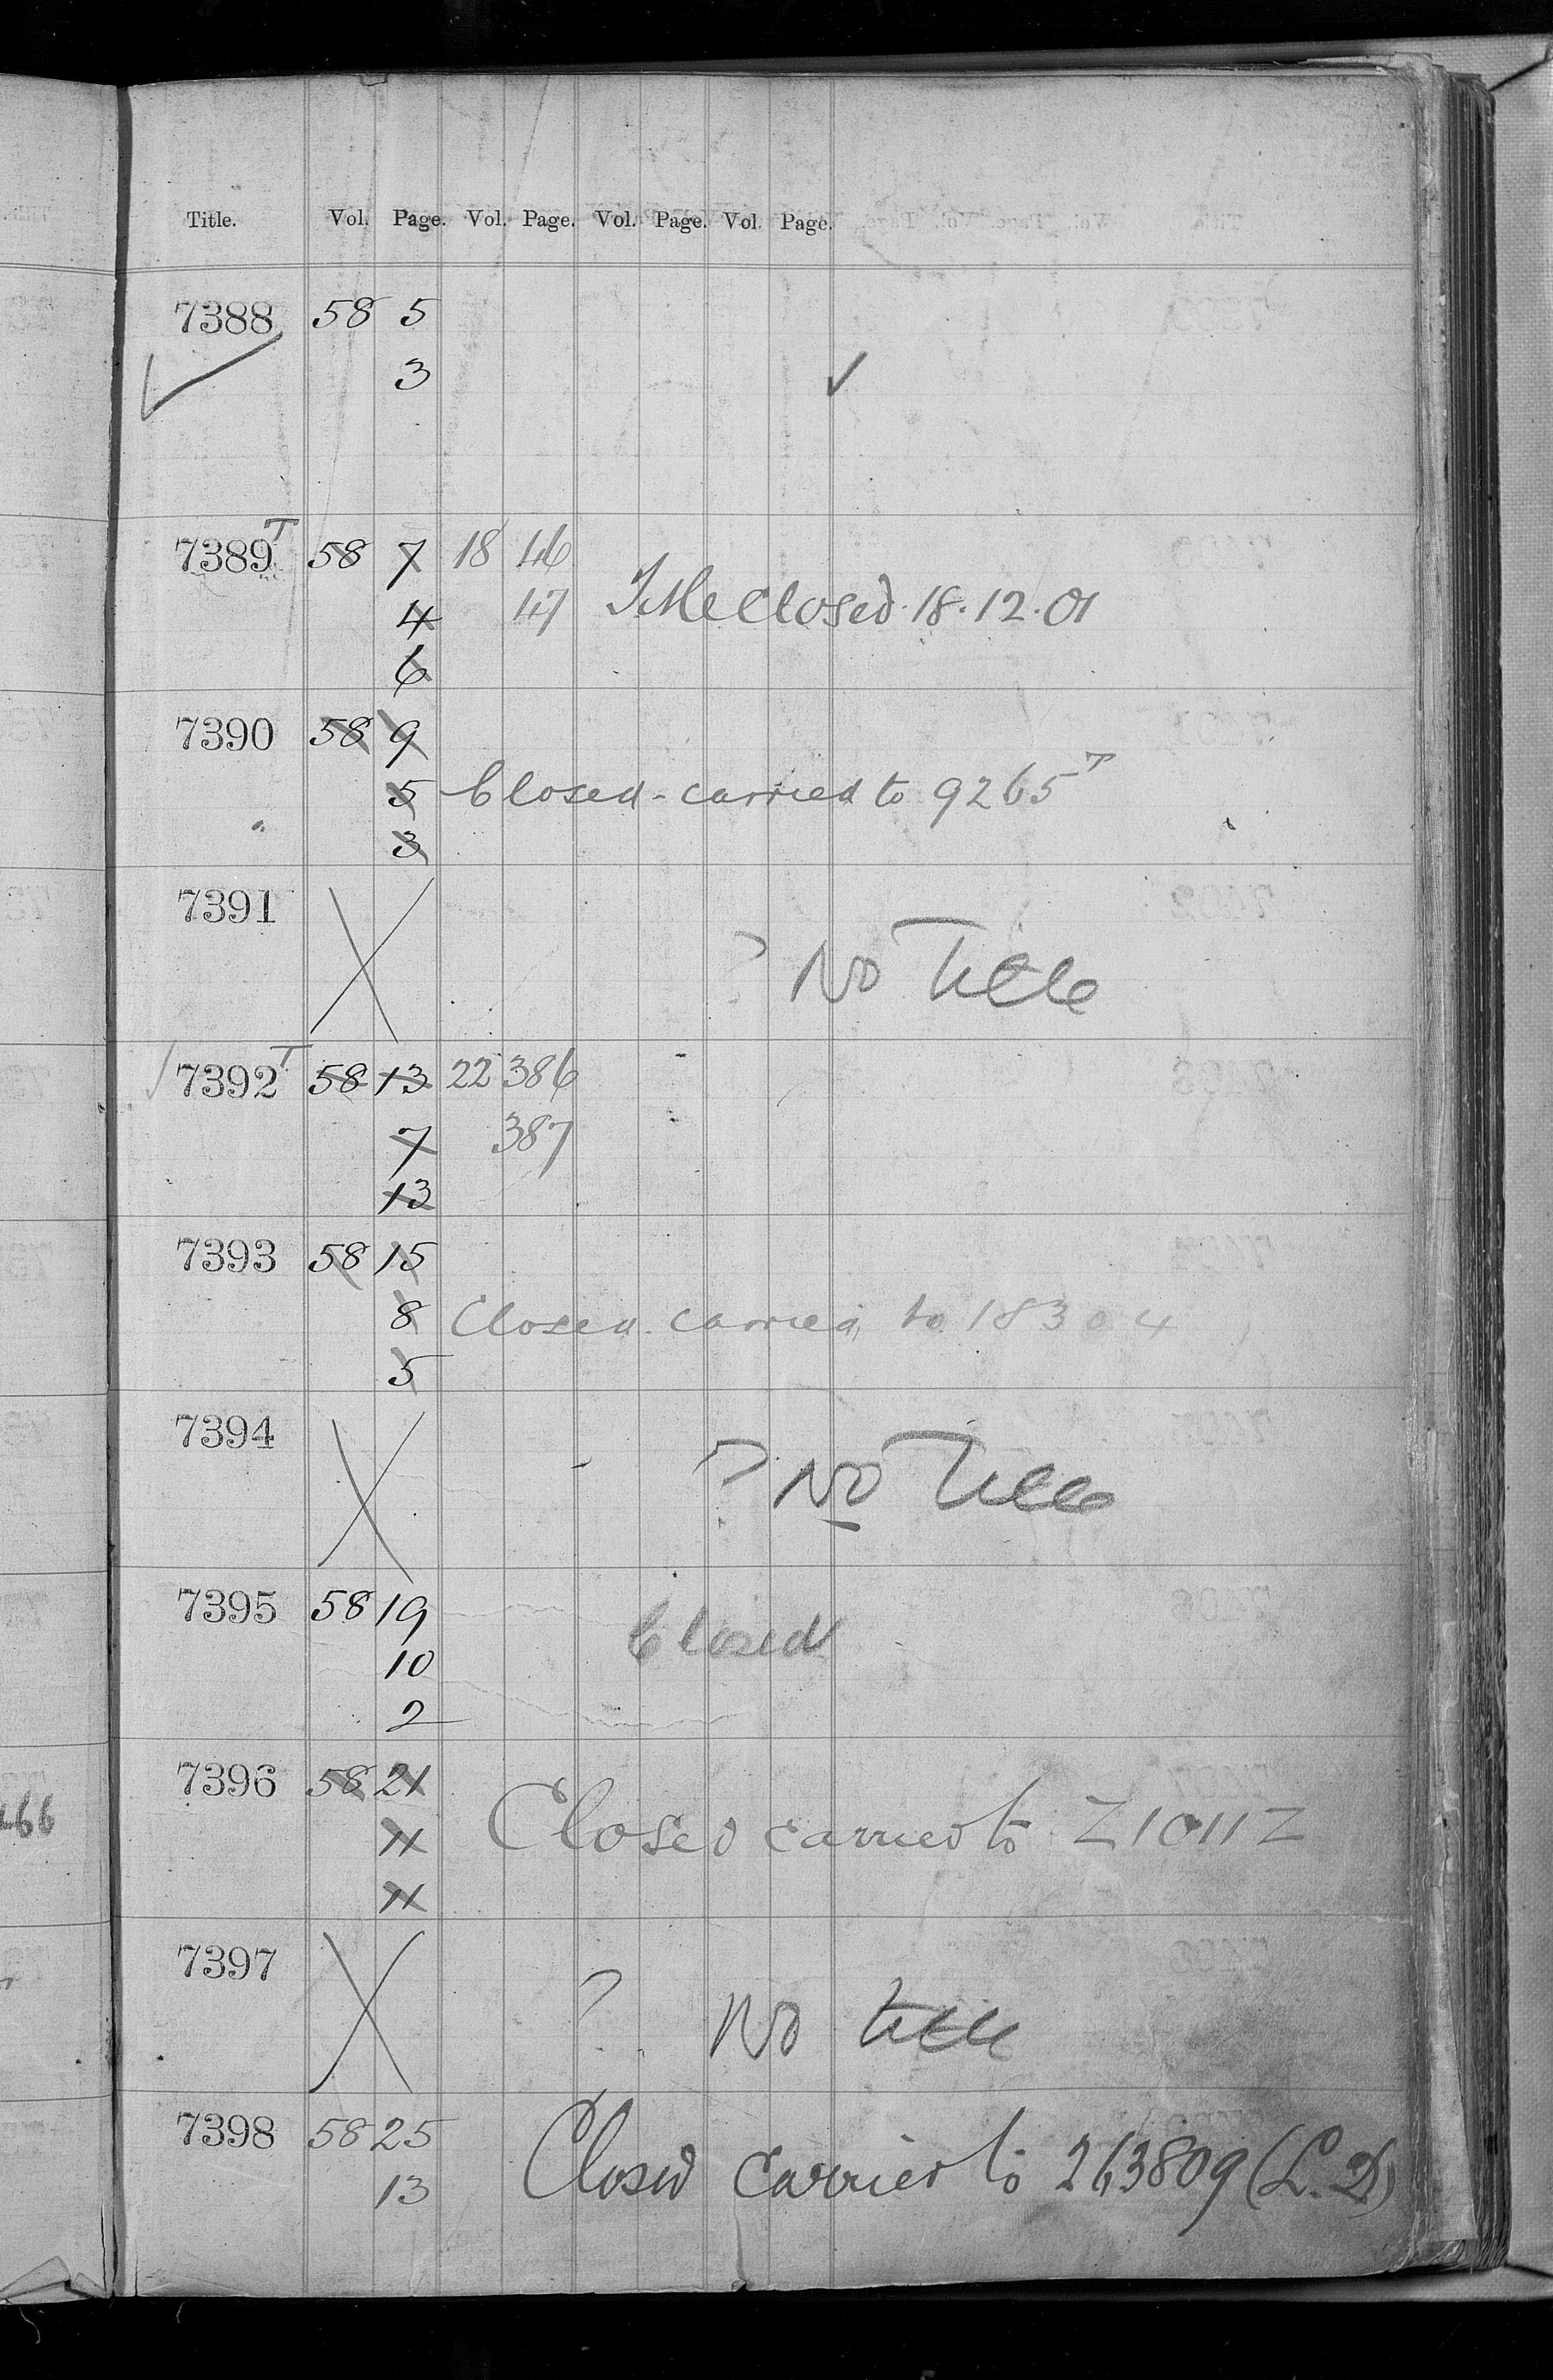 Title. Vol. Page. Vol. Page. Vol. Page. Vol. Page.
7388 58 5
3
7389T 58 7 18 46
4 47 Title Closed. 18.12.01
6
7390 58 9
5 Closed - carried to 9265T
3
7391
? No Title
7392T 58 13 22 386
7 387
13
7393 58 15
8 Closed carried to 18304
5
7394
? No Title
7395 58 19
Closed
10
2
7396 58 21
11 Closed carried to 210112
11
7397
? No title
7398 58 25
Closed carried to 263809 (L.D)
13
466